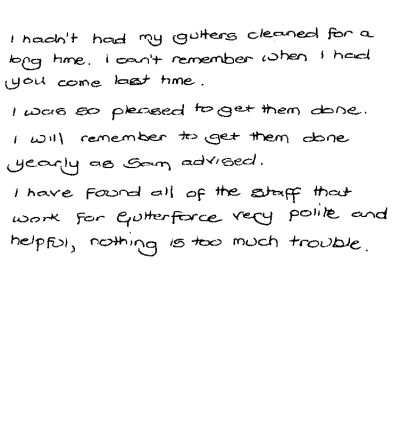 I hadn't had my gutters cleaned for a
long time. I can't remember when I had
you come last time.
I was so pleased to get them done.
I will remember to get them done
yearly as Sam advised.
I have found all of the staff that
work for Gutterforce very polite and
helpful, nothing is too much trouble.